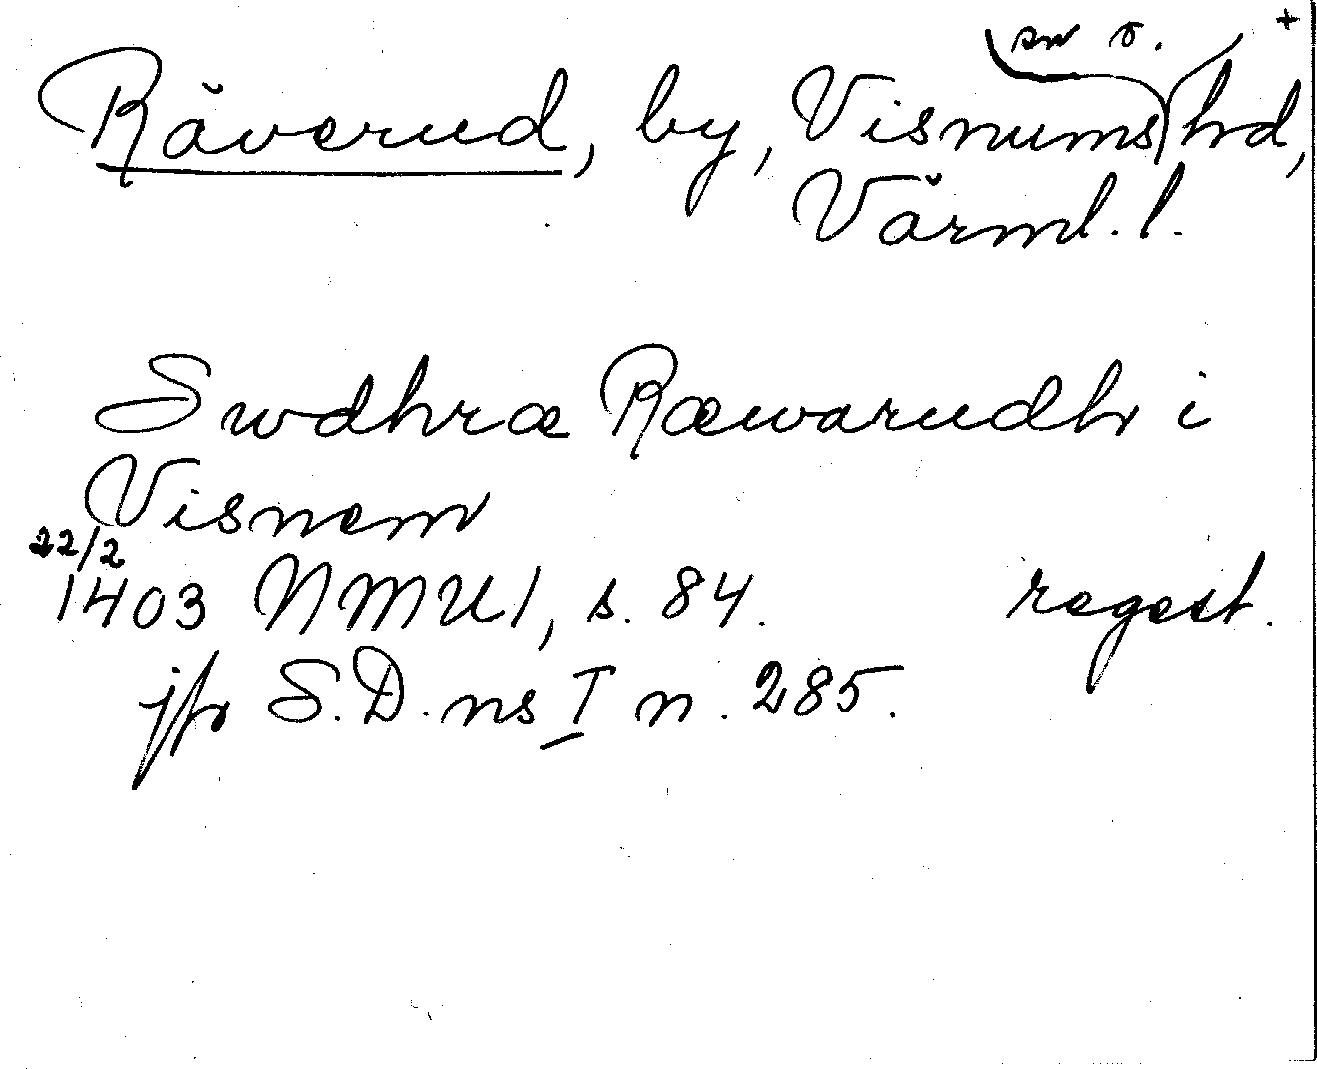 sn o. +
Räverud, by, Visnums hd,
Värml. l.
Swdhræ Ræwarudh i
Visnem
22/2
1403 NMU 1, s. 84. regest.
jfr S.D. ns I n. 285.